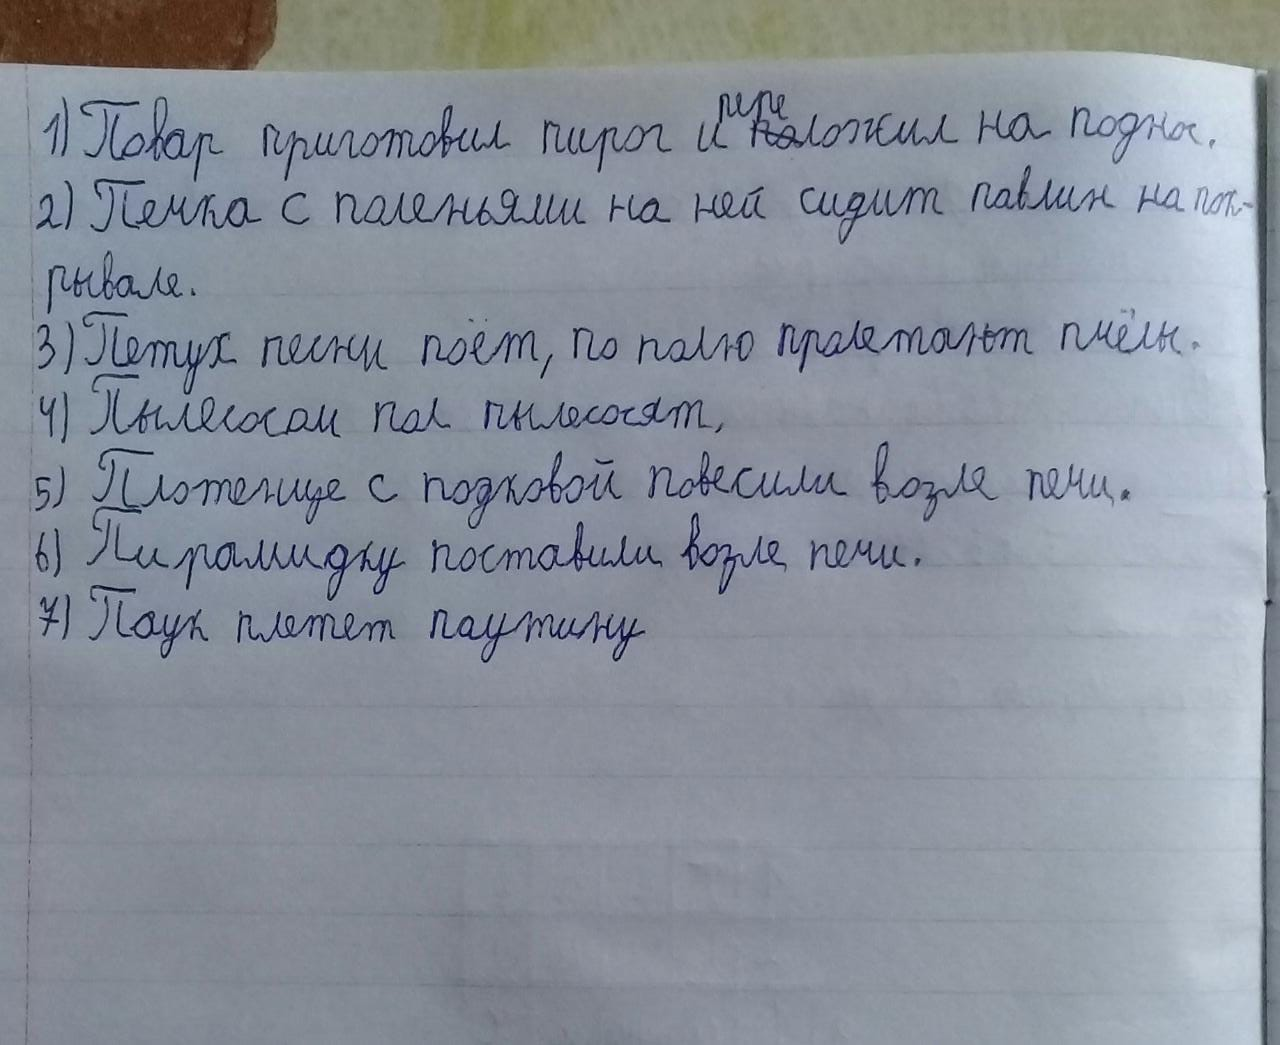 1) Повар приготовил пирог и переложил на поднос.
2) Печка с поленьями на ней сидит павлин на пок-
рывале.
3) Петух песни поёт, по полю пролетают пчёлы.
4) Пылесосом пол пылесосят,
5) Плотенце с подковой повесили возле печи.
6) Пирамидку поставили возле печи.
7) Паук плетет паутину